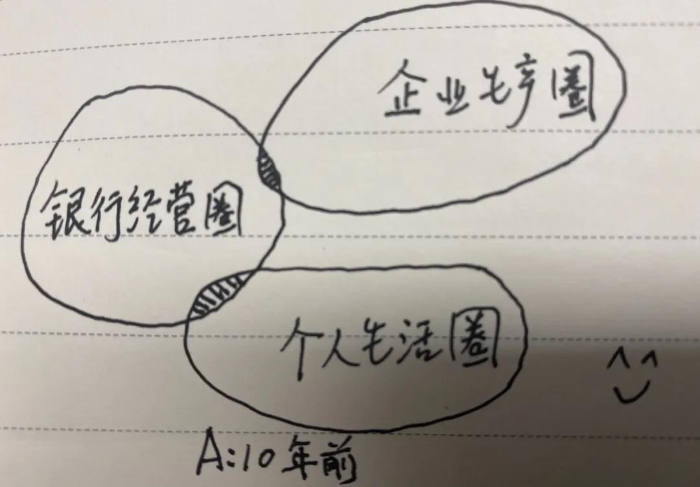 企业生产圈
银行经营圈
个人生活圈
A:10年前